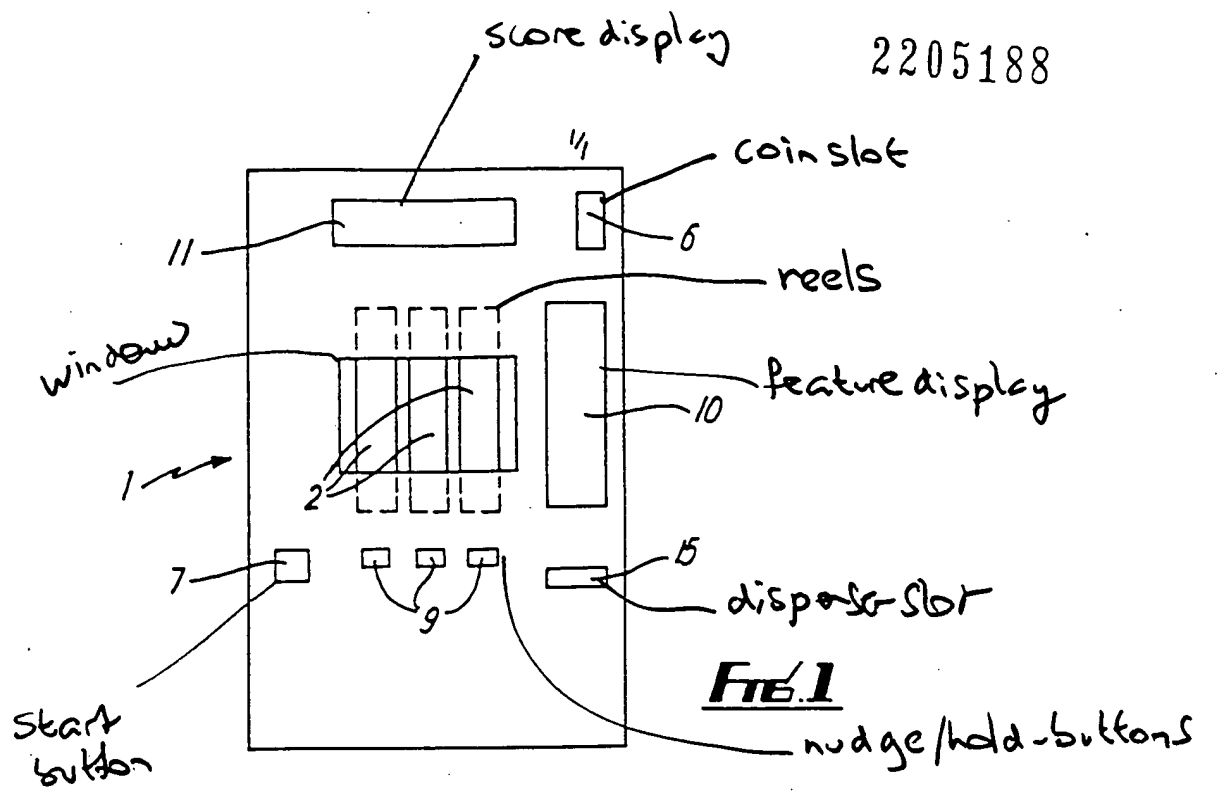 score display
2205188
1/1
coin slot
11
6
reels
window
feature display
10
1
2
7
15
9
dispenser slot
FIG. 1
start
button
nudge/hold-buttons